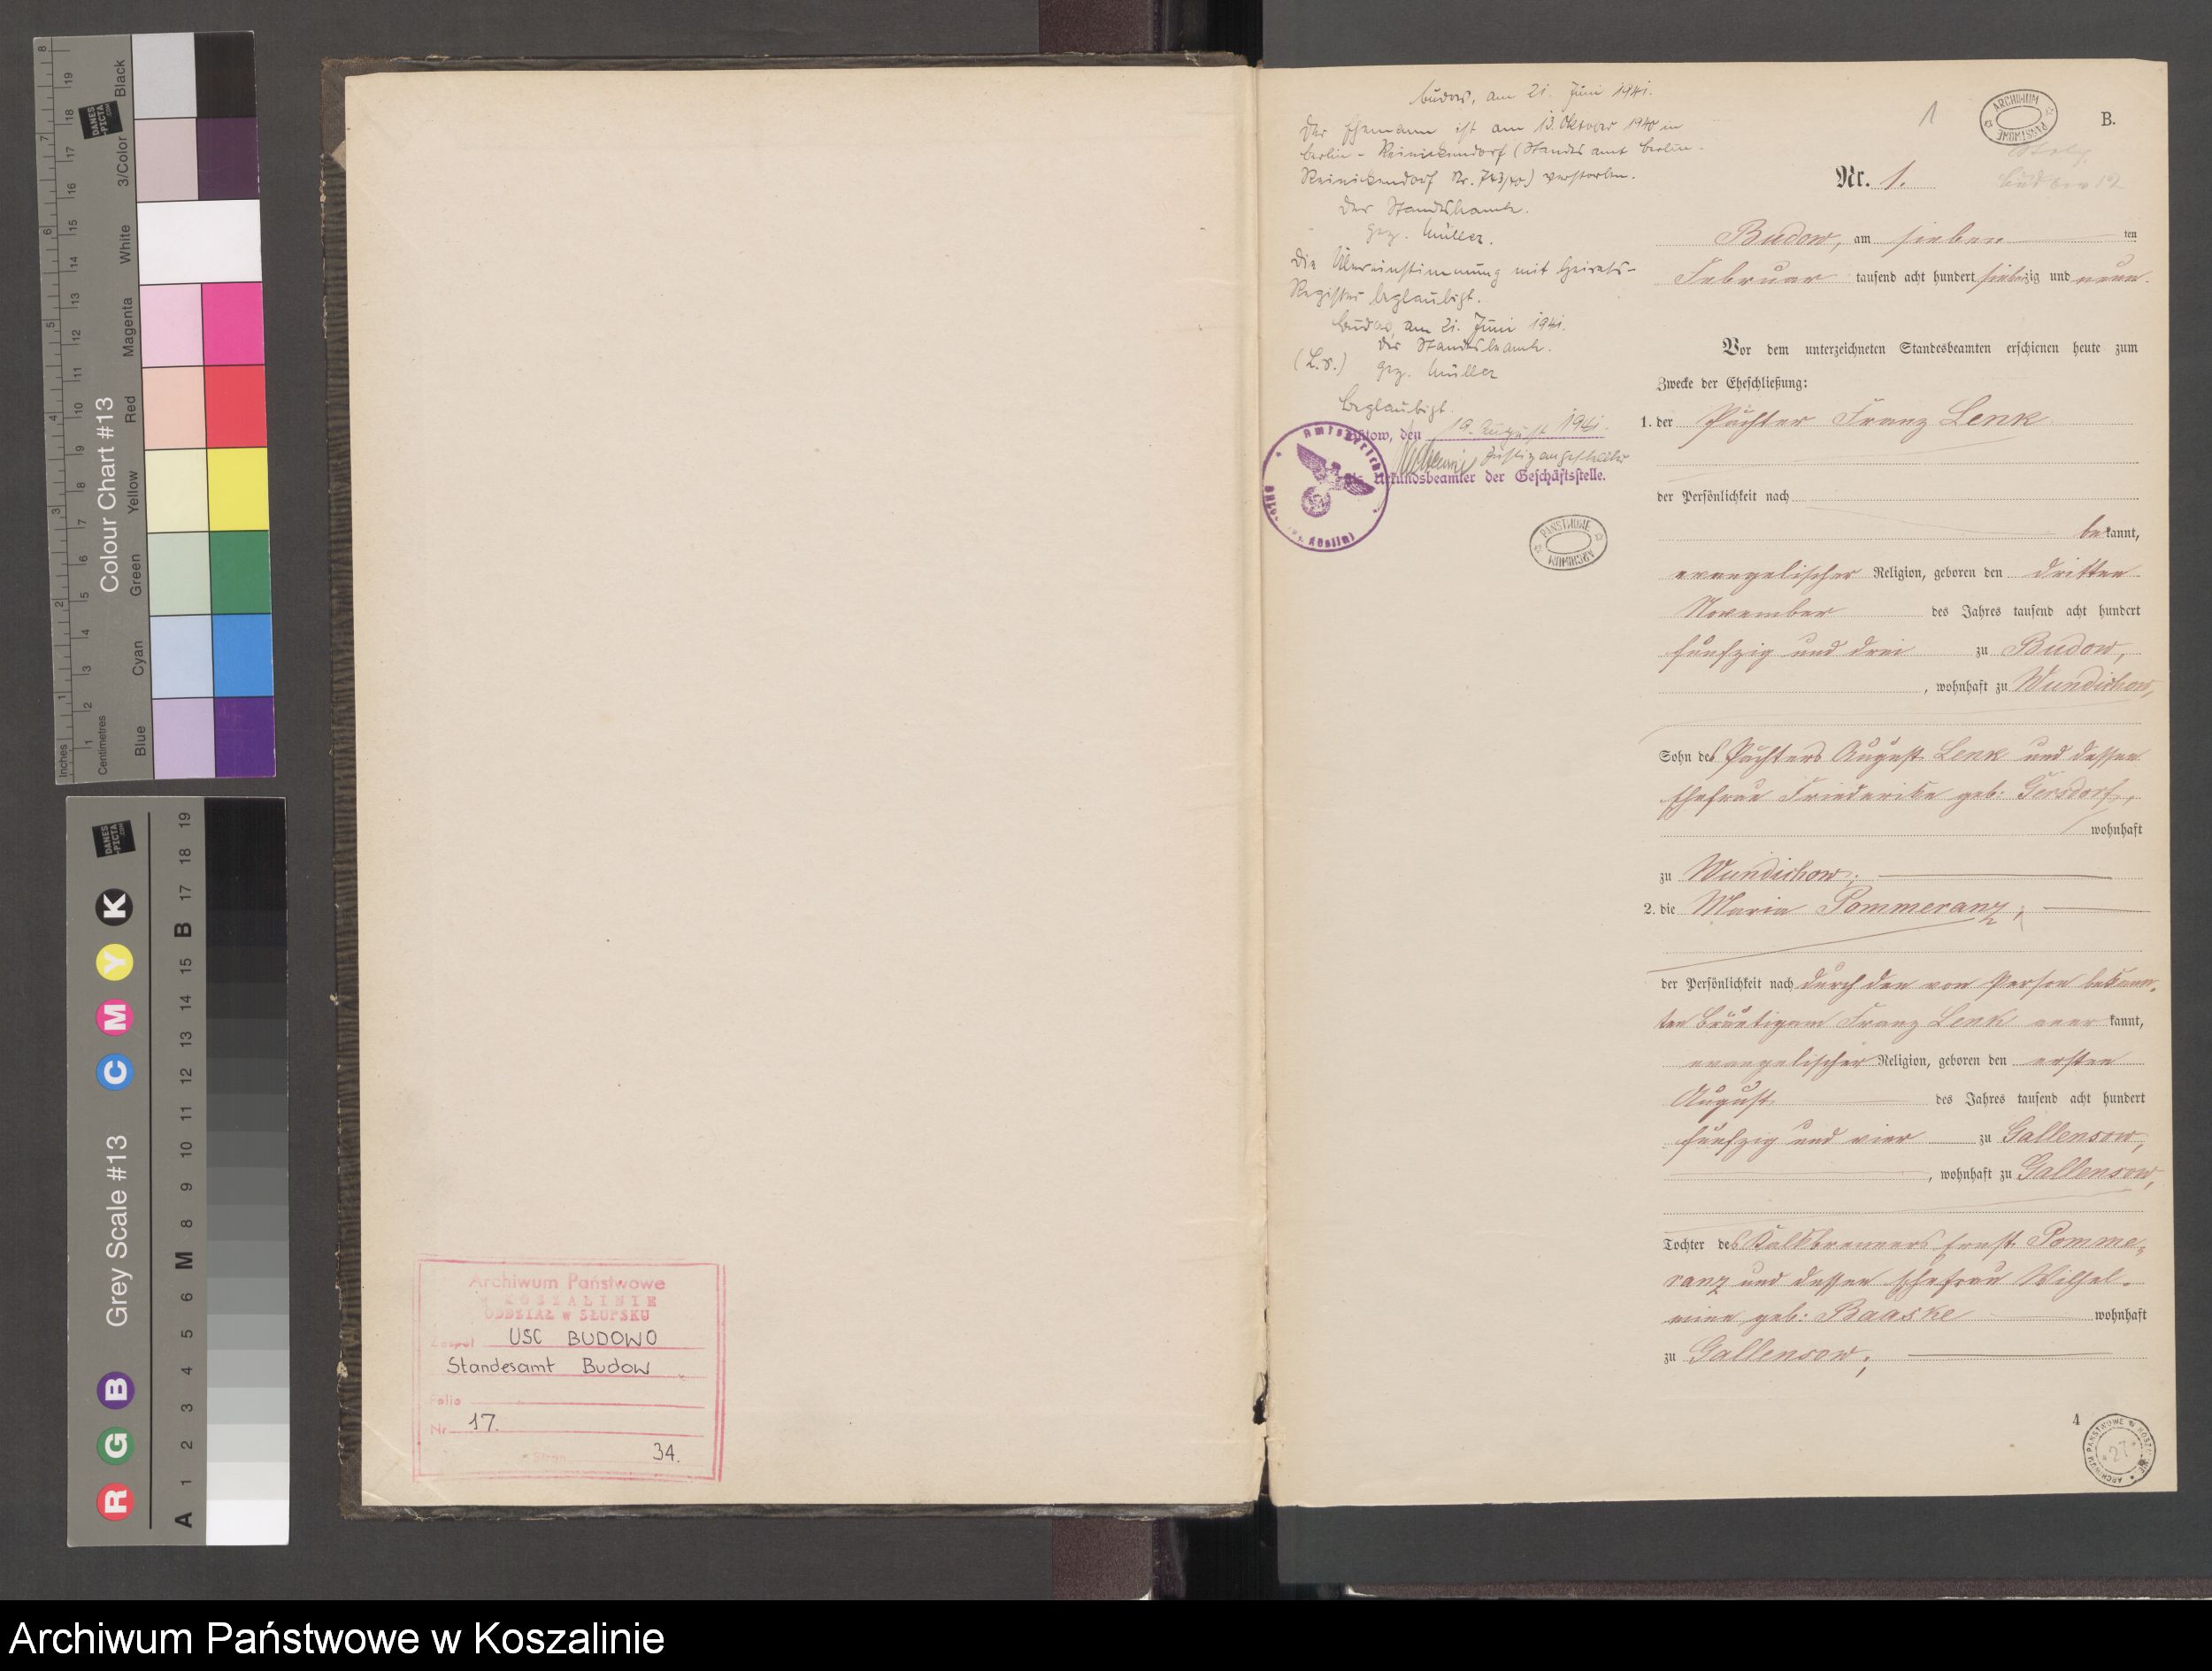 8
7
6
5
4
3
2
1
Inches
Centimetres
19
18
17
16
15
14
13
12
11
10
9
8
7
6
5
4
3
2
1
Colour Chart #13
Black
3/Color
White
Magenta
Red
Yellow
Green
Cyan
Blue
DANES
-PICTA
.COM
DANES
-PICTA
.COM
R G B Grey Scale #13 C M Y K
A 1 2 3 4 5 6 M 8 9 10 11 12 13 14 15 B 17 18 19
Archiwum Państwowe
w KOSZALINIE
ODDZIAŁ w SŁUPSKU
Zespół USC BUDOWO
Standesamt Budow
Folio
Nr 17.
Stron 34.
Budow, am 21. Juni 1941.
Der Ehemann ist am 13. Oktober 1940 in
Berlin-Reinickendorf (Standesamt Berlin-
Reinickendorf Nr. 743/40) verstorben.
Der Standesbeamte.
gez. Müller.
Die Übereinstimmung mit Heirats-
Register beglaubigt.
Budow, am 21. Juni 1941.
Der Standesbeamte.
(L.S.) gez. Müller
Beglaubigt.
Bütow, den 19. August 1941.
Justizangestellter
als Urkundsbeamter der Geschäftsstelle.
Amtsgericht
Köslin)
PAŃSTWOWE
ARCHIWUM
1
ARCHIWUM
PAŃSTWOWE
B.
Nr. 1.
Budow, am sieben ten
Februar tausend acht hundert siebenzig und neun.
Vor dem unterzeichneten Standesbeamten erschienen heute zum
Zwecke der Eheschließung:
1. der Pächter Franz Lenk
der Persönlichkeit nach
bekannt,
evangelischer Religion, geboren den dritten
November des Jahres tausend acht hundert
fünfzig und drei zu Budow,
, wohnhaft zu Wundichow,
Sohn des Pächters August Lenk und dessen
Ehefrau Friederike geb: Gersdorf,
wohnhaft
zu Wundichow;
2. die Maria Pommeranz,
der Persönlichkeit nach durch den von Person bekann-
ten Bräutigam Franz Lenk anerkannt,
evangelischer Religion, geboren den ersten
August des Jahres tausend acht hundert
fünfzig und vier zu Gallensow,
, wohnhaft zu Gallensow,
Tochter des Kalkbrenners Ernst Pomme-
ranz und dessen Ehefrau Wilhel-
mine geb: Baaske wohnhaft
zu Gallensow;
4
27
Archiwum Państwowe w Koszalinie